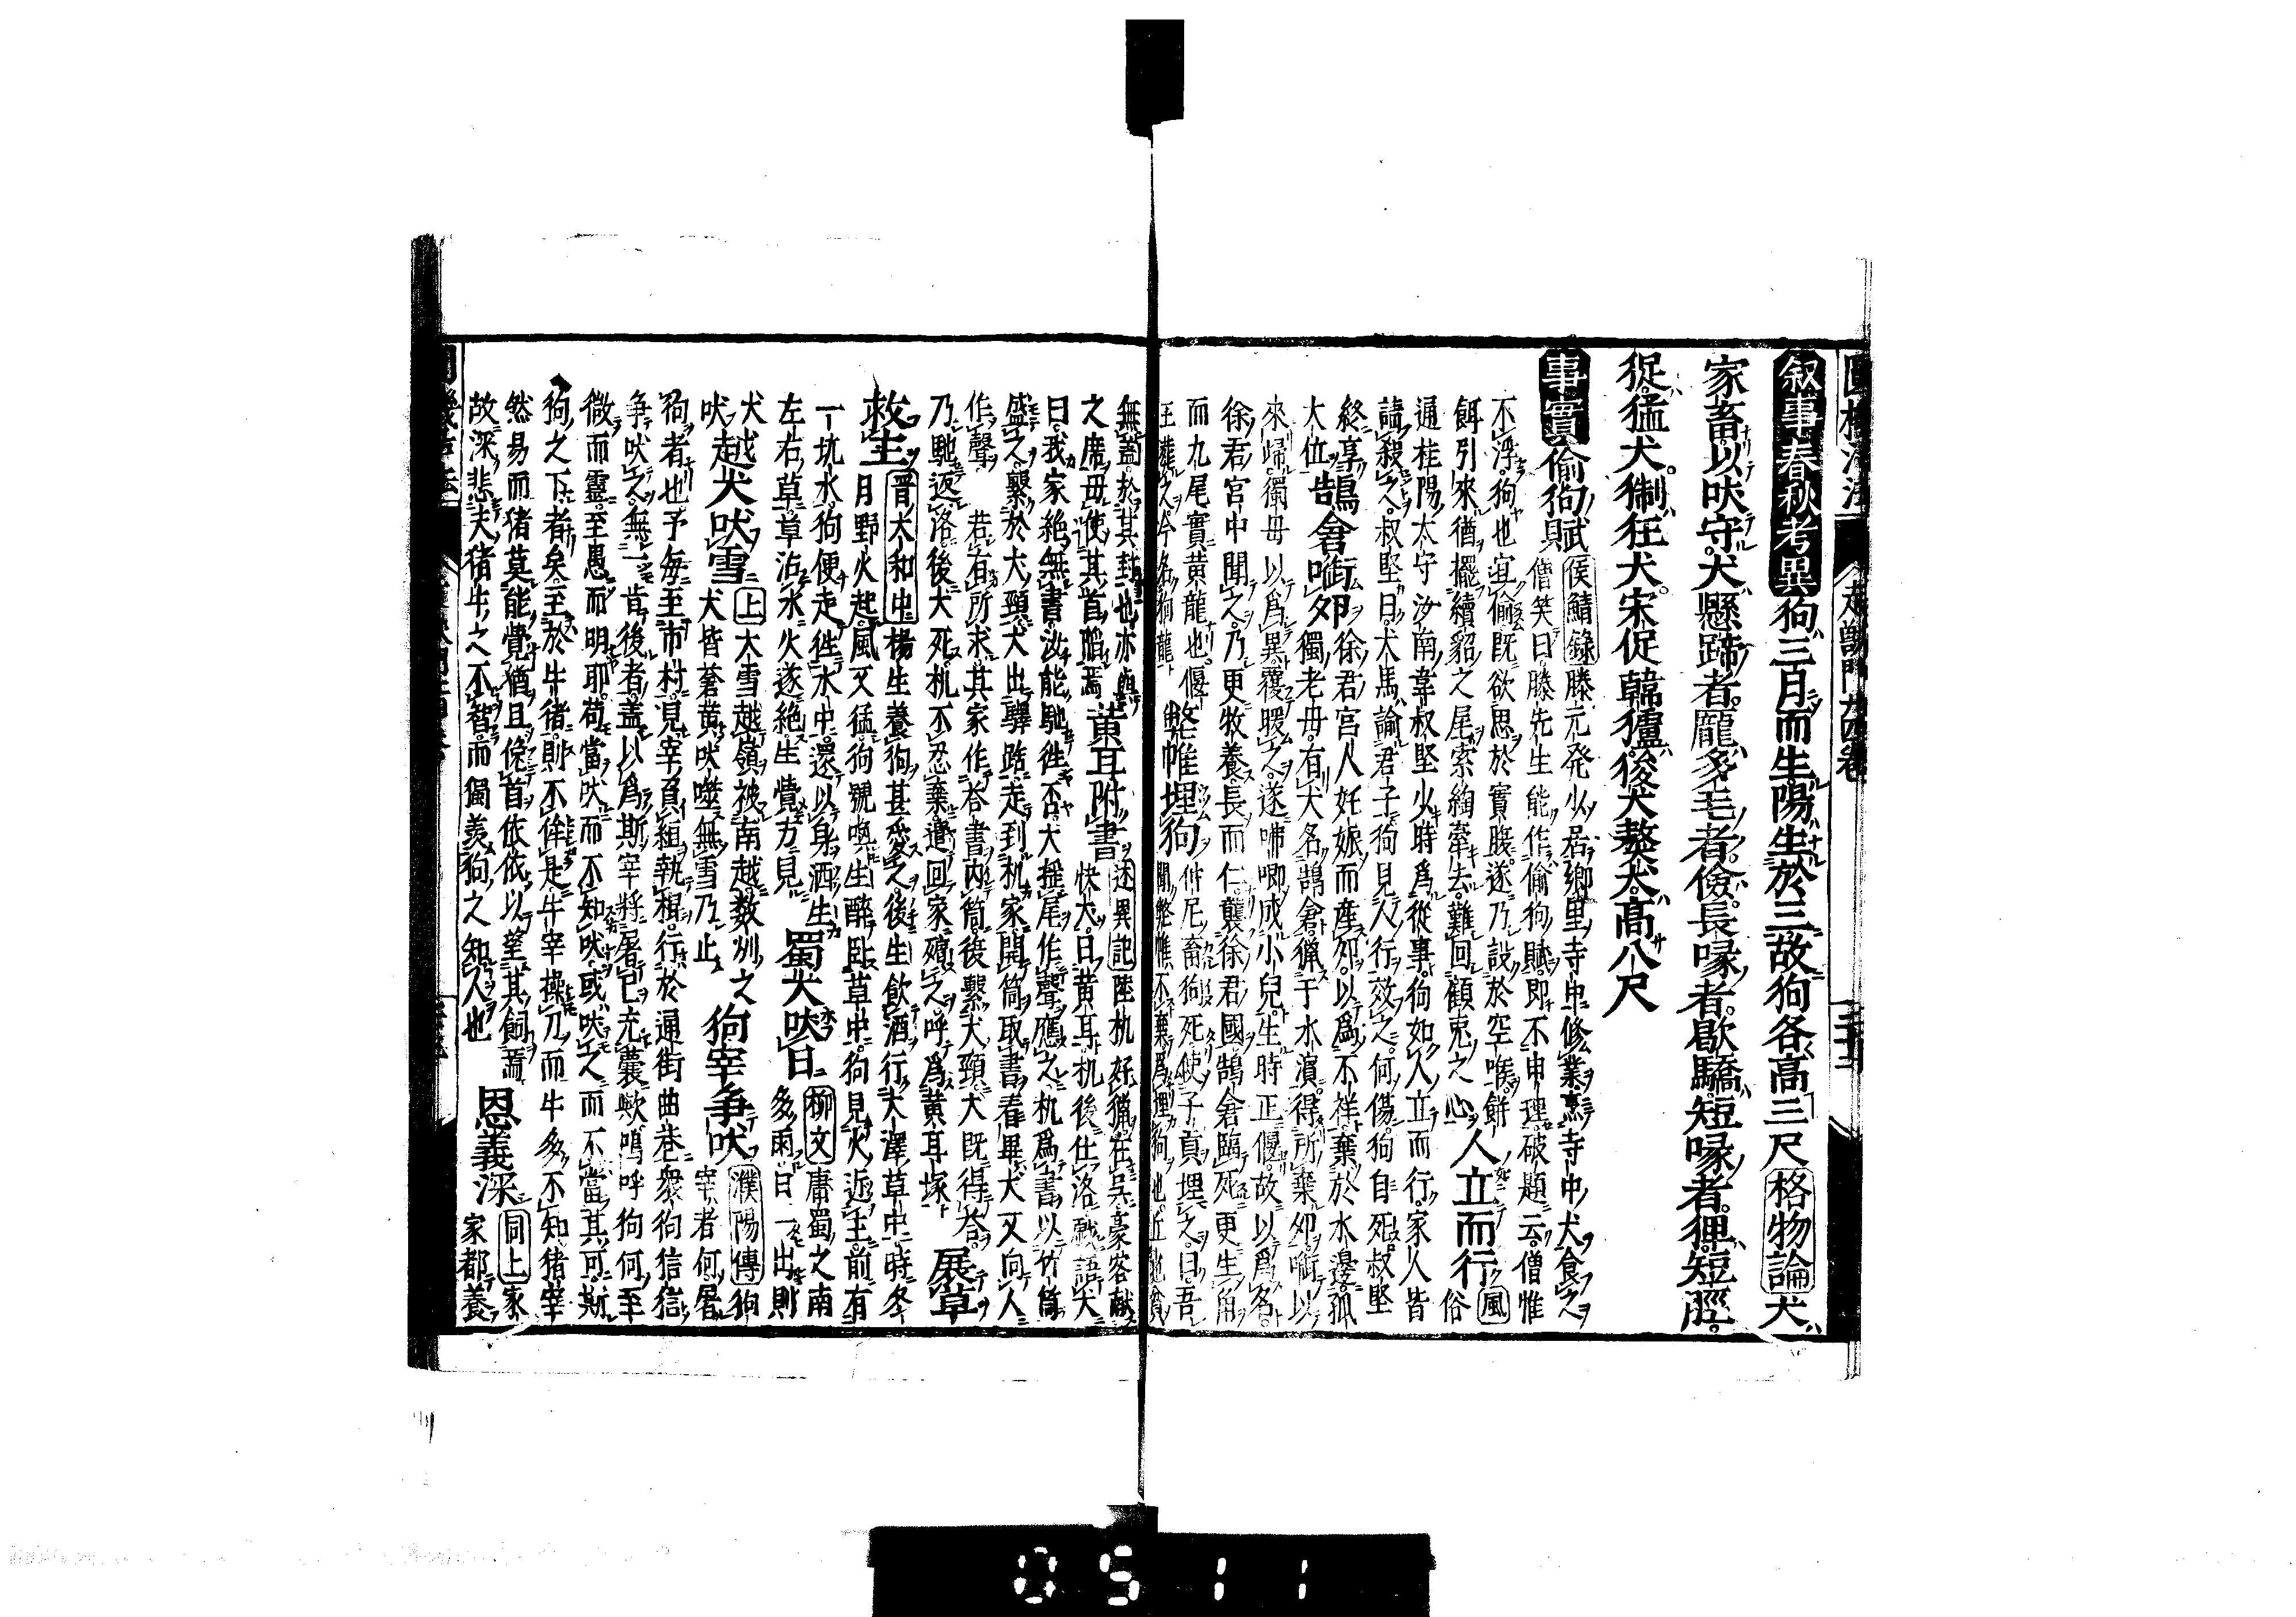 叙事春秋考異狗三月而生陽生於三故狗各高三尺格物論犬
家畜以吠守犬懸蹄者龐多毛者儉長喙者歇驕短喙者狸短脛
猛犬狾狂犬宋促韓獹後犬獒犬高八尺
事實偷狗賦侯鯖錄滕元発少居鄉里寺中修業烹寺中犬食之
僧笑曰滕先生能作偷狗賦即不申理破題云僧惟
不浮狗也宜偷既欲思於實腹遂乃設於空喉餅
餌引來猶擺續貂之尾索綯牽去難回顧兎之心人立而行風俗
通桂陽太守汝南韋叔堅少時為從事狗如人立而行家人皆
請殺之叔堅曰犬馬諭君子狗見人行效之何傷狗自死叔堅
終享大位鵠倉啣夘徐君宮人妊娠而產夘以為不祥棄於水邊孤
獨老母有犬名鵠倉獵于水濱得所棄夘啣以
來歸獨母以為異覆暖之遂啼唧成小兒生時正偃故以為名
徐君宮中聞之乃更牧養長而仁襲徐君國鵠倉臨死更生角
而九尾實黃龍也偃
王葬之今名狗龍弊帷埋狗仲尼畜狗死使子貢埋之曰吾
聞弊帷不棄為埋狗也丘也貧
無蓋於其封也亦與
之席毋使其首陷焉黃耳附書述異記陸机好獵在吳豪客献
快犬曰黃耳机後仕洛戲語犬
曰我家絕無書汝能馳往否犬搖尾作聲應之机為書以竹筒
盛之繫於犬頸犬出驛路走到机家開筒取書看畢犬又向人
作聲 若有所求其家作荅書內筒後繫犬頸犬既得荅
乃馳返洛後犬死机不忍棄遣回家殯之呼為黃耳塚 展草
救生晋太和中楊生養狗甚愛之後生飲酒行大澤草中時冬
月野火起風又猛狗號喚生醉臥草中狗見火逰主前有
一坑水狗便走往水中還以身洒生
左右草草沾水火遂絕生覺方見蜀犬吠日柳文庸蜀之南
多雨日一出則
犬越犬吠雪上大雪越嶺被南越数州之
吠犬皆蒼黃吠噬無雪乃止 狗宰争吠濮陽傳狗
宰者何屠
狗者也予每至市村見宰負組執棍行於通街曲巷衆狗信信
争吠之無一肯後者盖以為斯宰將屠已充囊歟嗚呼狗何至
微而靈至愚而明耶苟當吠而不知吠或吠之而不當其可斯
狗之下者矣至於牛猪則不侔是牛宰操刀而牛多不知猪宰
然易而猪莫能覺猶且俛首依依以望其飼焉
故深悲夫猪牛之不智而獨羡狗之知人也 恩義深同上家
家都養